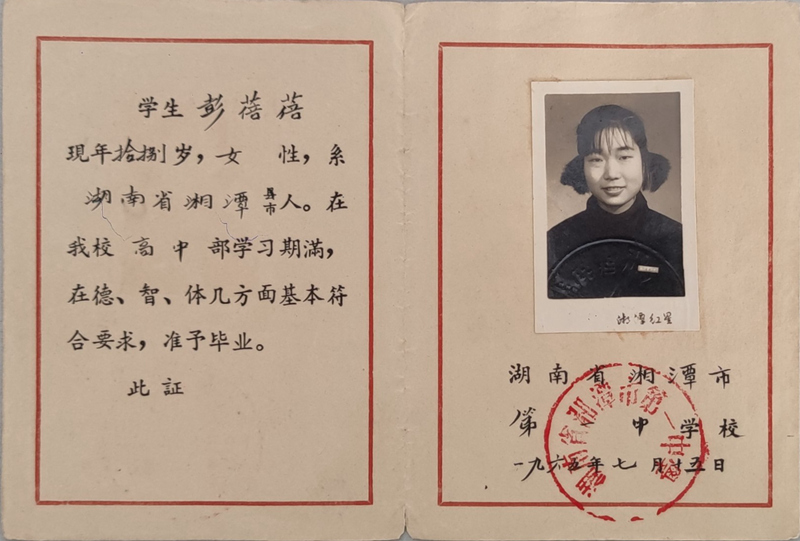 学生 彭蓓蓓
现年拾捌岁，女 性，系
湖南省湘潭县市人。在
我校 高中 部学习期满，
在德、智、体几方面基本符
合要求，准予毕业。
此証
湘潭红星
湖南省湘潭市
第 中学校
一九六五年七月十五日
湖南省湘潭市第一中